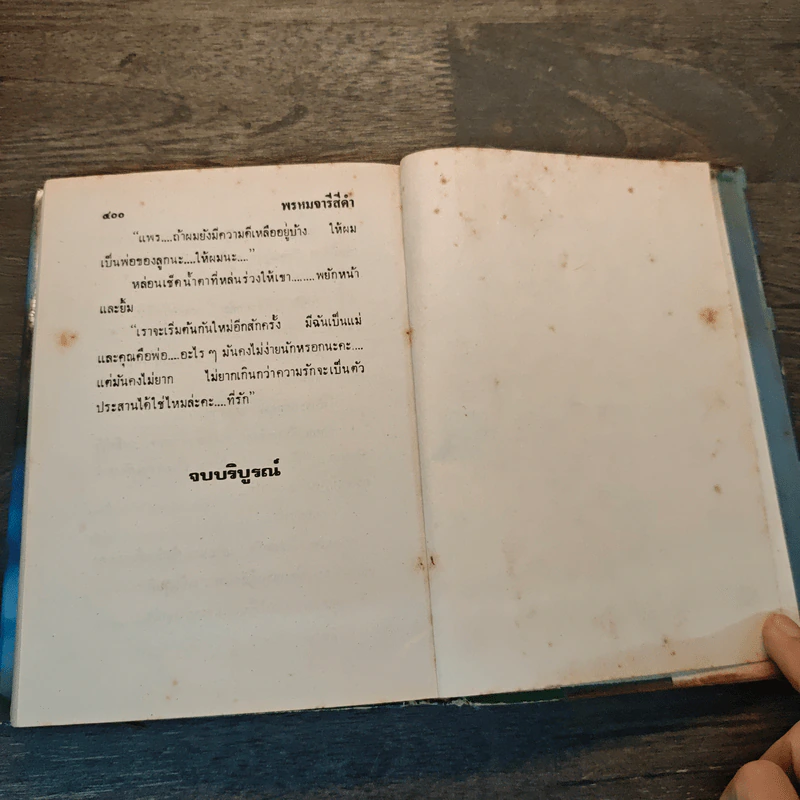 ๔๐๐ พรหมจารีสีดำ
“แพร....ถ้าผมยังมีความดีเหลืออยู่บ้าง ให้ผม
เป็นพ่อของลูกนะ....ให้ผมนะ....”
หล่อนเช็ดน้ำตาที่หล่นร่วงให้เขา........พยักหน้า
และยิ้ม
“เราจะเริ่มต้นกันใหม่อีกสักครั้ง มีฉันเป็นแม่
และคุณคือพ่อ....อะไร ๆ มันคงไม่ง่ายนักหรอกนะคะ....
แต่มันคงไม่ยาก ไม่ยากเกินกว่าความรักจะเป็นตัว
ประสานได้ใช่ไหมล่ะคะ....ที่รัก”
จบบริบูรณ์